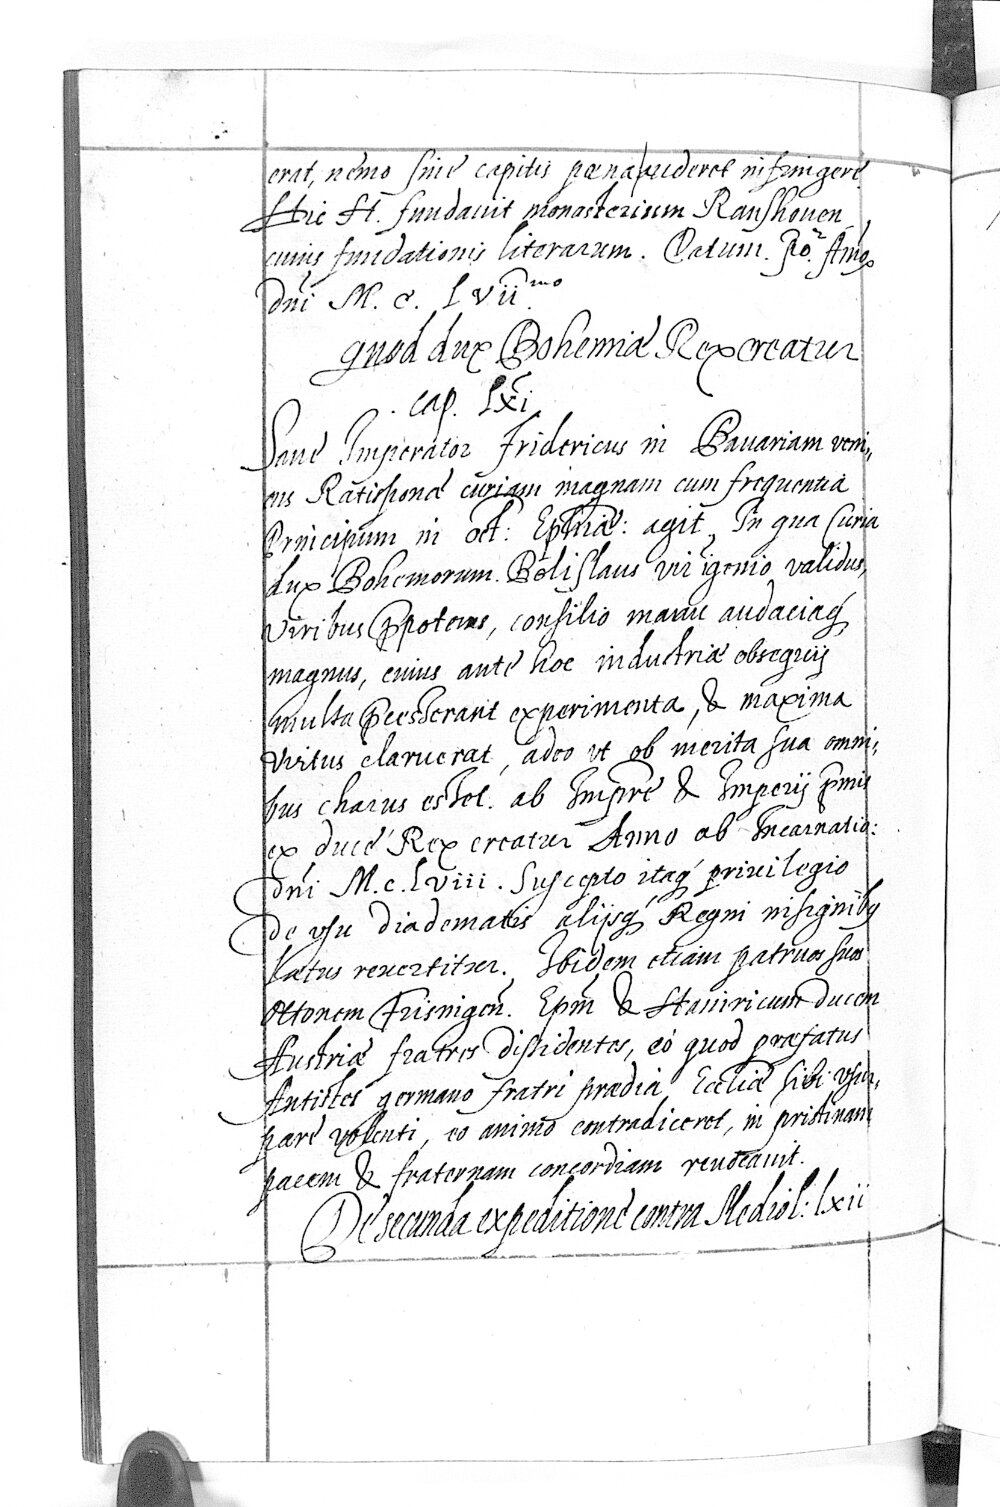 erat, nemo sine capitis pœna auderet infringere.
Hic H. fundavit monasterium Ranshouen,
cuius fundationis literarum. Datum. Anno
dñi M. c. lvii.mo
Quod dux Bohemiæ Rex creatur
. cap. lxi
Sane Imperator Fridericus in Bauariam veni,,
ens Ratisponæ curiam magnam cum frequentia
Principum in oct: Ephiæ: agit, In qua Curia
dux Bohemorum. Bolislaus vir igenio validus,
viribus ppotens, consilio manu audaciaq
magnus, cuius ante hoc industriæ obsequij
multa pcesserant experimenta, & maxima
virtus claruerat, adeo vt ob merita sua omni,,
bus charus esset. ab Impre & Imperij pmis
ex duce Rex creatur Anno ab Incarnatio:
dñi M. c. lviii. suscepto itaq priuilegio
de vsu diadematis alijsq Regni insignibq
lætus reuertitur. Ibidem etiam patruos suos
Ottonem Frisingeñ. Epm̃ & Hainricum Ducem
Austriæ fratres dissidentes, eo quod præfatus
Antistes germano fratri prædia Eccliæ sibi vsur,,
pare volenti, eo animo contradiceret, in pristinam
pacem & fraternam concordiam reuocauit.
De secunda expeditione contra Mediol: lxii